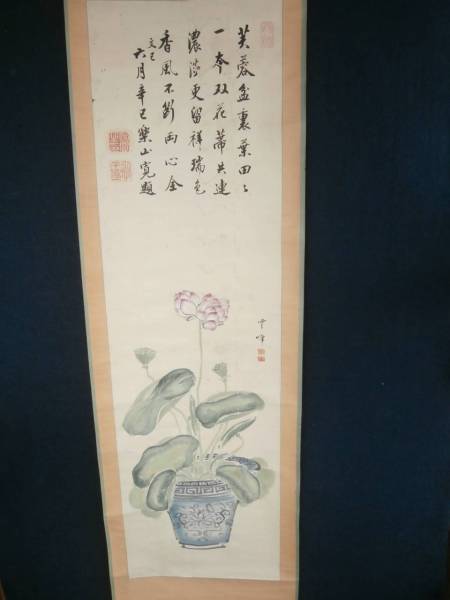 芙蓉盆裏葉田〻
一本双花蒂共連
濃淡更留祥瑞色
香風不断両心全
文己
六月辛巳樂山寛題
雲峰